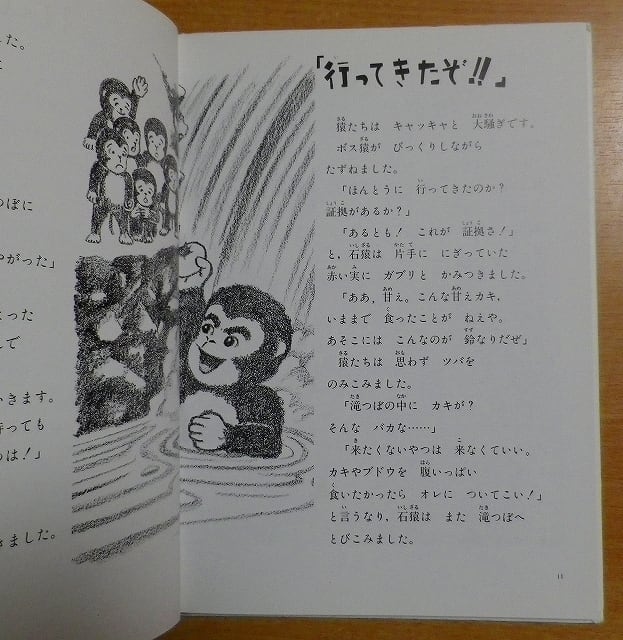 した。
に
つぼに
やがった」
とった
して
いきます。
待っても
つは！」
きました。
「行ってきたぞ!!」
猿たちは キャッキャと 大騒ぎです。
ボス猿が びっくりしながら
たずねました。
「ほんとうに 行ってきたのか？
証拠があるか？」
「あるとも！ これが 証拠さ！」
と、石猿は 片手に にぎっていた
赤い実に ガブリと かみつきました。
「ああ、甘え。こんな甘えカキ、
いままで 食ったことが ねえや。
あそこには こんなのが 鈴なりだぜ」
猿たちは 思わず ツバを
のみこみました。
「滝つぼの中に カキが？
そんな バカな……」
「来たくないやつは 来なくていい。
カキやブドウを 腹いっぱい
食いたかったら オレに ついてこい！」
と言うなり、石猿は また 滝つぼへ
とびこみました。
11